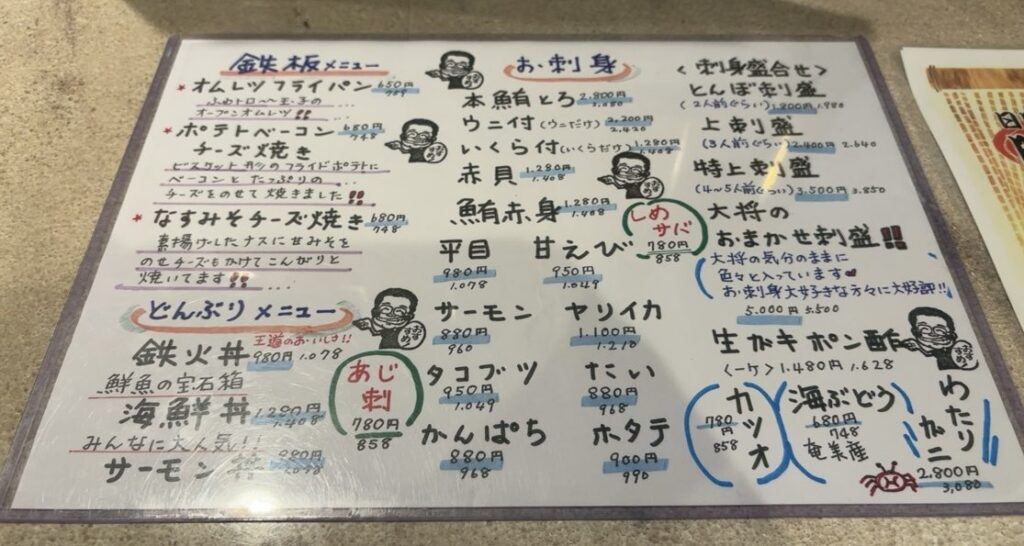 鉄板メニュー
★オムレツフライパン 650円
ふわトロ〜〜王子の
オープンオムレツ!!
★ポテトベーコン 680円
748
チーズ焼き
ビスケット形のフライドポテトに
ベーコンとたっぷりの
チーズをのせて焼きました!!
★なすみそチーズ焼き 680円
748
素揚げしたナスに甘みそを
のせチーズもかけてこんがりと
焼いてます!!
どんぶりメニュー
王道のおいしさ!!
鉄火丼 980円 1.078
鮮魚の宝石箱
海鮮丼 1.280円
1.408
みんなに大人気!!
サーモン丼
お刺身
本鮪とろ 2.800円
3.080
ウニ付(ウニだけ) 2,200円
2,420
いくら付(いくらだけ) 1.280円
1.408
赤貝 1.280円
1.408
鮪赤身 1.280円
1.408
しめ
サバ
780円
858
平目
980円
1.078
甘えび
950円
1.049
サーモン
880円
960
ヤリイカ
1.100円
1.210
あじ
刺
780円
858
タコブツ
950円
1.049
たい
880円
968
かんぱち
880円
968
ホタテ
900円
990
<刺身盛合せ>
とんぼ刺り盛
(2人前ぐらい) 1.800円 1.980
上刺り盛
(3人前ぐらい) 2.400円 2.640
特上刺り盛
(4〜5人前ぐらい) 3.500円 3.850
大将の
おまかせ刺盛!!
大将の気分のままに
色々と入っています♥
お刺身大好きな方々に大好評!!
5.000円 5.500
生ガキポン酢
(一ケ) 1.480円 1.628
カツオ
780円
858
海ぶどう
680円
748
奄美産
わたり
ガニ
2.800円
3,080